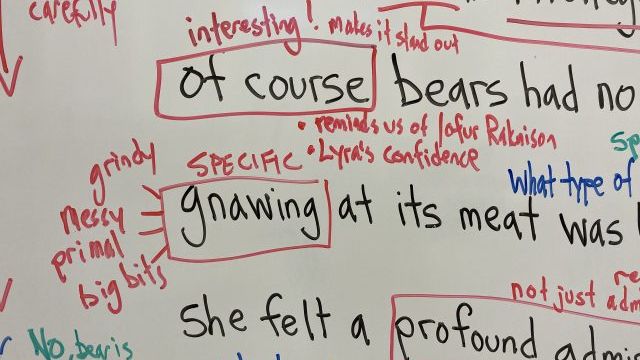 carefully
interesting! makes it stand out
of course bears had no
• reminds us of Iofur Raknison
• Lyra's confidence
SPECIFIC
grindy
messy
primal
big bits
What type of
gnawing at its meat was
not just
She felt a profound
No, bear is